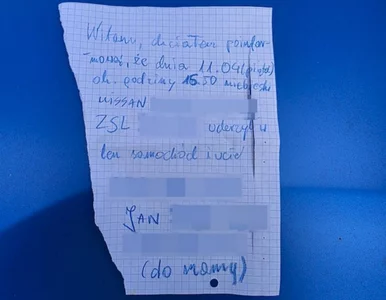 Witam, chciałam poinfor-
mować, że dnia 11.04 (piątek)
ok. godziny 15.50 niebieski
NISSAN
ZSL uderzył w
ten samochód i uciekł
JAN
(do mamy)